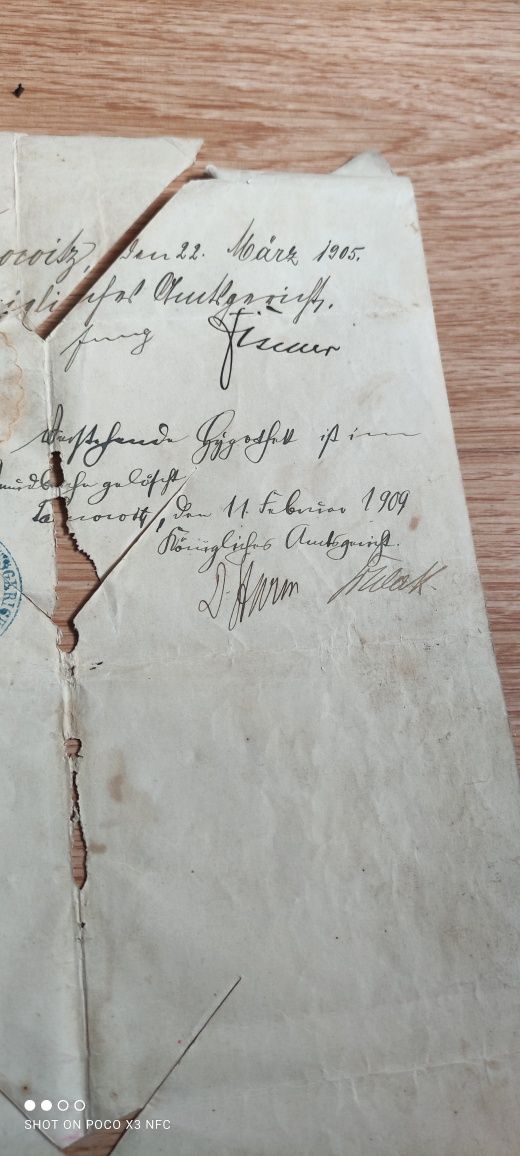 owitz, den 22. März 1905.
igliches Amtsgericht.
Jung
Vorstehende Hypothek ist im
rundbuche gelöscht
, den 11. Februar 1909
Königliches Amtsgericht.
SHOT ON POCO X3 NFC